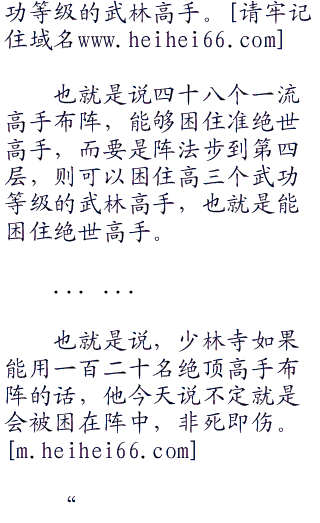 功等级的武林高手。[请牢记
住域名www.heihei66.com]
也就是说四十八个一流
高手布阵，能够困住准绝世
高手，而要是阵法步到第四
层，则可以困住高三个武功
等级的武林高手，也就是能
困住绝世高手。
... ...
也就是说，少林寺如果
能用一百二十名绝顶高手布
阵的话，他今天说不定就是
会被困在阵中，非死即伤。
[m.heihei66.com]
“